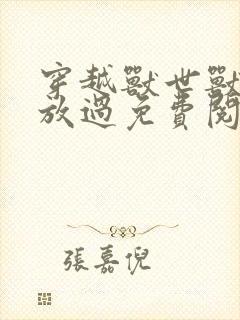 穿越獸世獸
放過免費閱
張嘉倪